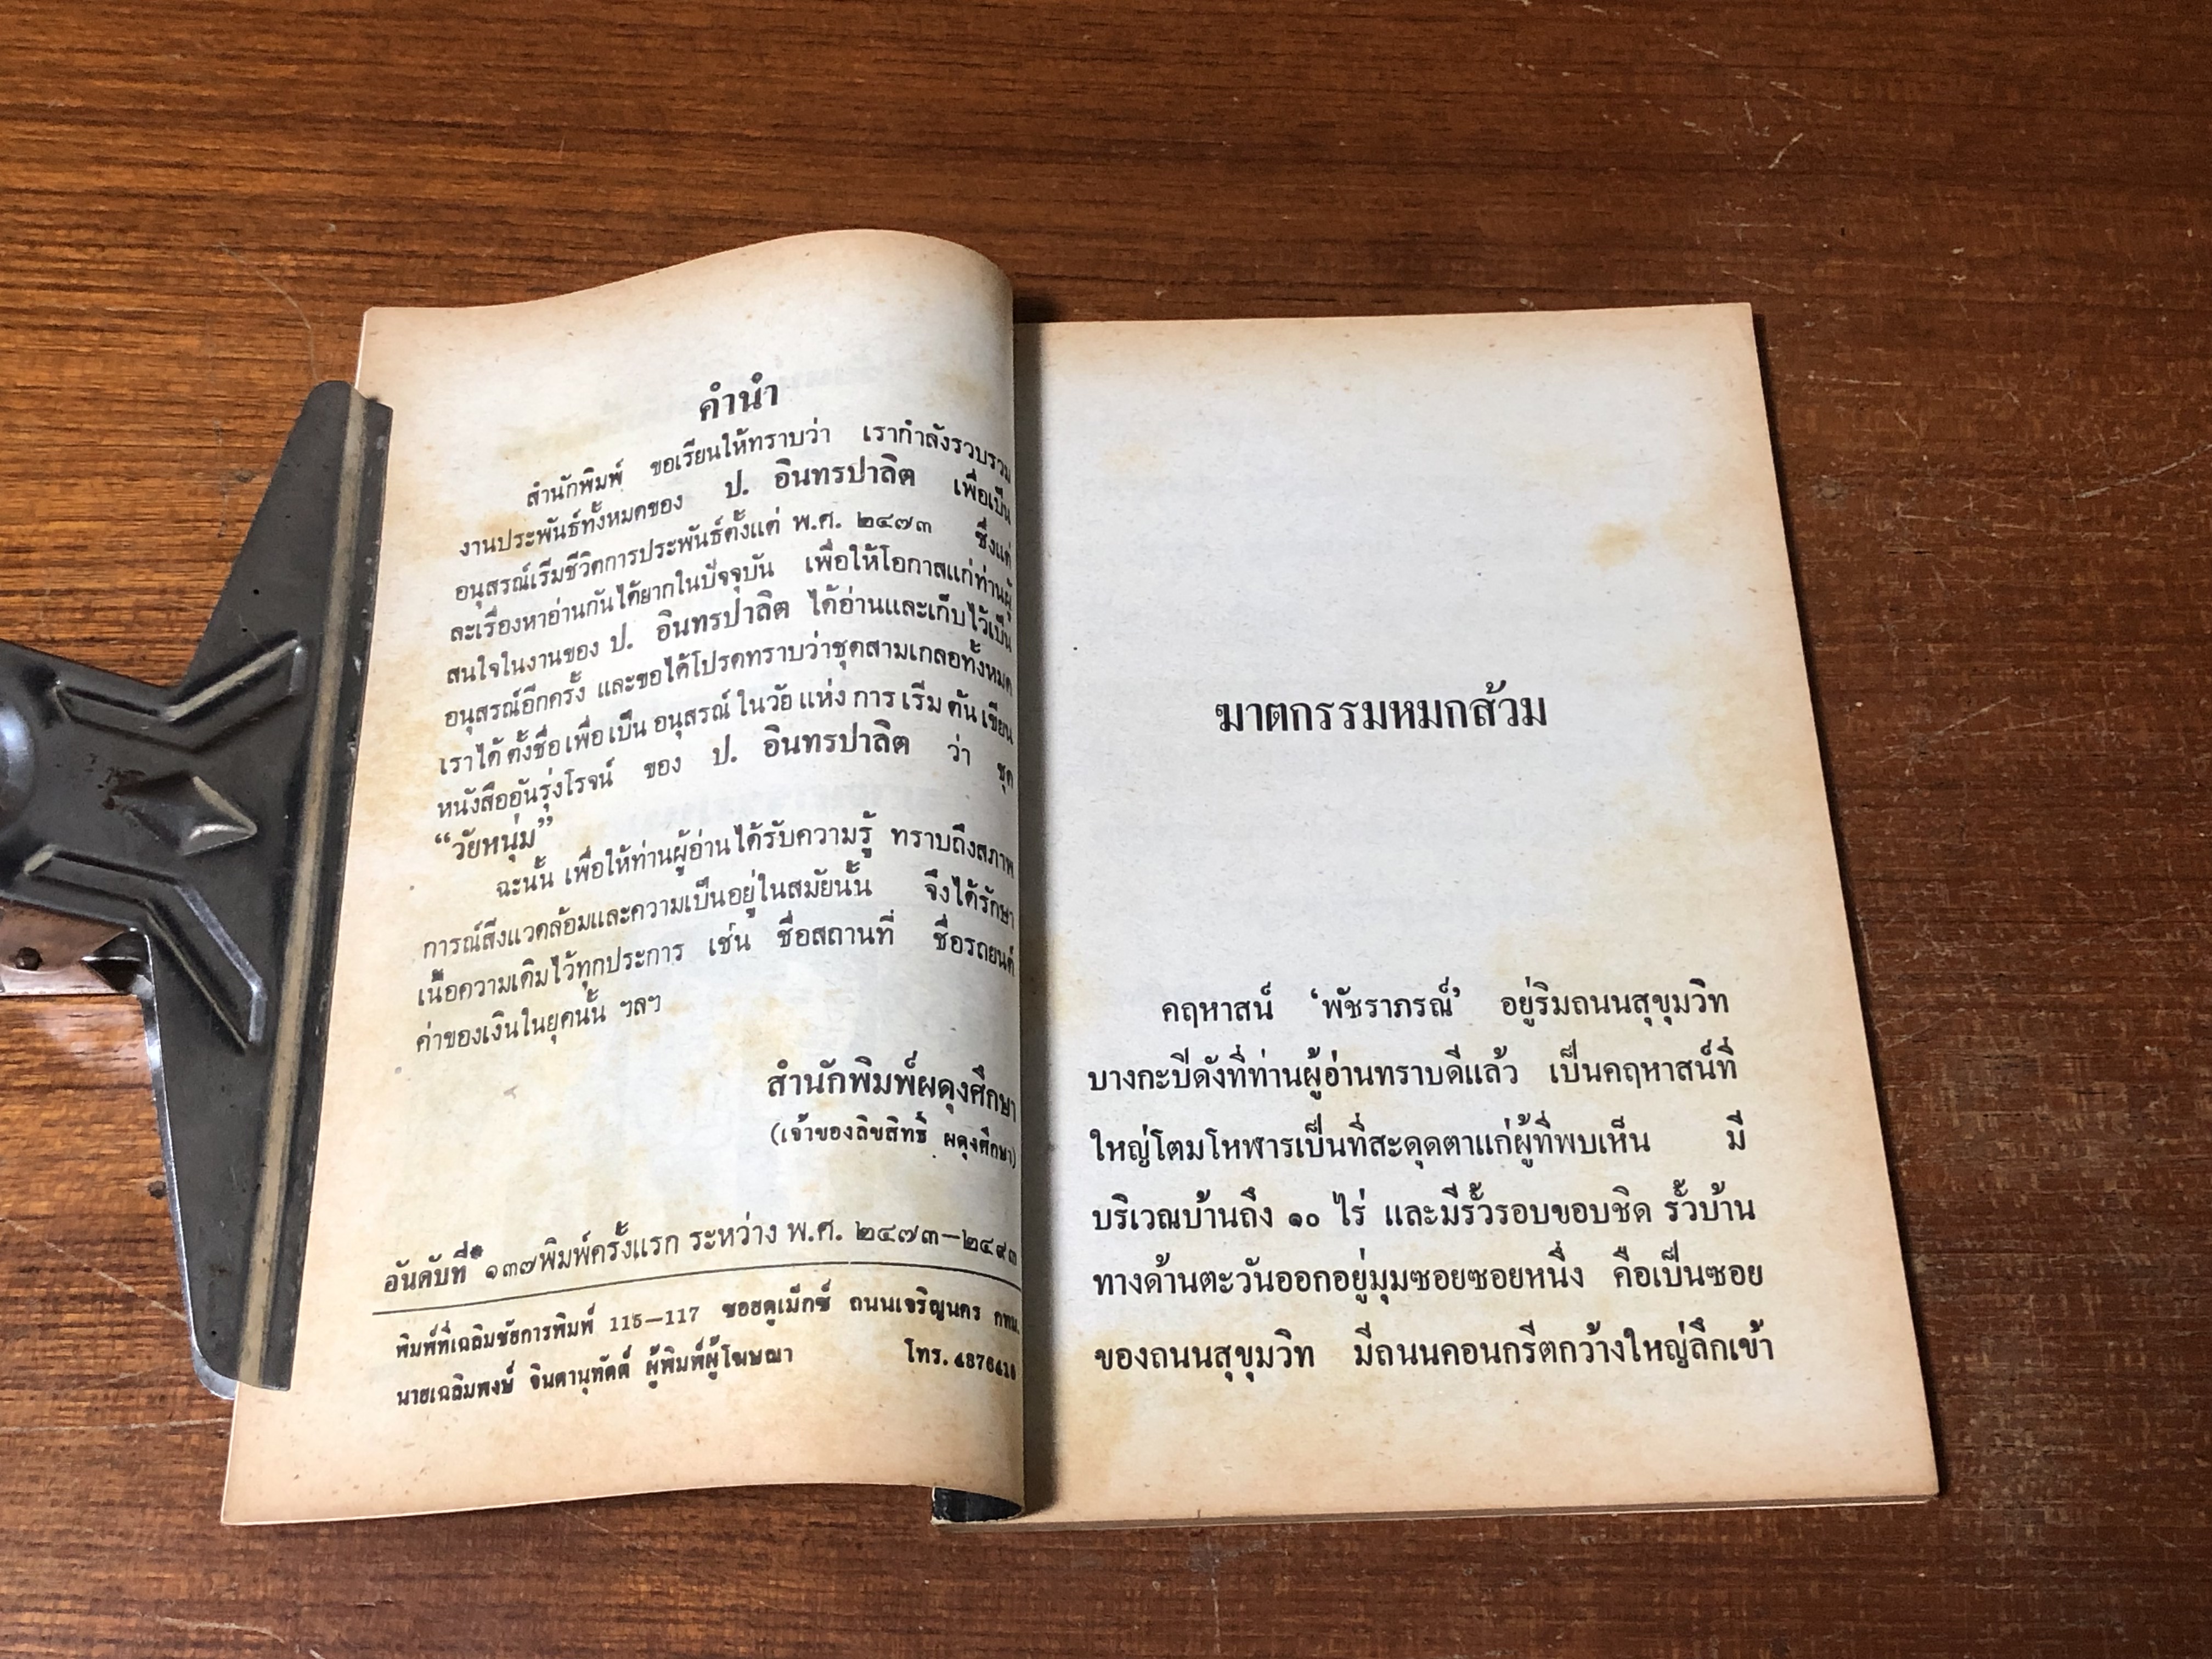 คำนำ
สำนักพิมพ์ ขอเรียนให้ทราบว่า เรากำลังรวบรวม
งานประพันธ์ทั้งหมดของ ป. อินทรปาลิต เพื่อเป็น
อนุสรณ์เริ่มชีวิตการประพันธ์ตั้งแต่ พ.ศ. ๒๔๗๓ ซึ่งแต่
ละเรื่องหาอ่านกันได้ยากในปัจจุบัน เพื่อให้โอกาสแก่ท่านผู้
สนใจในงานของ ป. อินทรปาลิต ได้อ่านและเก็บไว้เป็น
อนุสรณ์อีกครั้ง และขอได้โปรดทราบว่าชุดสามเกลอทั้งหมด
เราได้ ตั้งชื่อ เพื่อ เป็น อนุสรณ์ ในวัย แห่ง การ เริ่ม ต้น เขียน
หนังสืออันรุ่งโรจน์ ของ ป. อินทรปาลิต ว่า ชุด
“วัยหนุ่ม”
ฉะนั้น เพื่อให้ท่านผู้อ่านได้รับความรู้ ทราบถึงสภาพ
การณ์สิ่งแวดล้อมและความเป็นอยู่ในสมัยนั้น จึงได้รักษา
เนื้อความเดิมไว้ทุกประการ เช่น ชื่อสถานที่ ชื่อรถยนต์
ค่าของเงินในยุคนั้น ฯลฯ
สำนักพิมพ์ผดุงศึกษา
(เจ้าของลิขสิทธิ์ ผดุงศึกษา)
อันดับที่ ๑๓๗ พิมพ์ครั้งแรก ระหว่าง พ.ศ. ๒๔๗๓—๒๔๙๓
พิมพ์ที่เฉลิมชัยการพิมพ์ 115—117 ซอยดูเม็กซ์ ถนนเจริญนคร กทม.
นายเฉลิมพงษ์ จินดานุทัตต์ ผู้พิมพ์ผู้โฆษณา โทร.
ฆาตกรรมหมกส้วม
คฤหาสน์ ‘พัชราภรณ์’ อยู่ริมถนนสุขุมวิท
บางกะปีดังที่ท่านผู้อ่านทราบดีแล้ว เป็นคฤหาสน์ที่
ใหญ่โตมโหฬารเป็นที่สะดุดตาแก่ผู้ที่พบเห็น มี
บริเวณบ้านถึง ๑๐ ไร่ และมีรั้วรอบขอบชิด รั้วบ้าน
ทางด้านตะวันออกอยู่มุมซอยซอยหนึ่ง คือเป็นซอย
ของถนนสุขุมวิท มีถนนคอนกรีตกว้างใหญ่ลึกเข้า